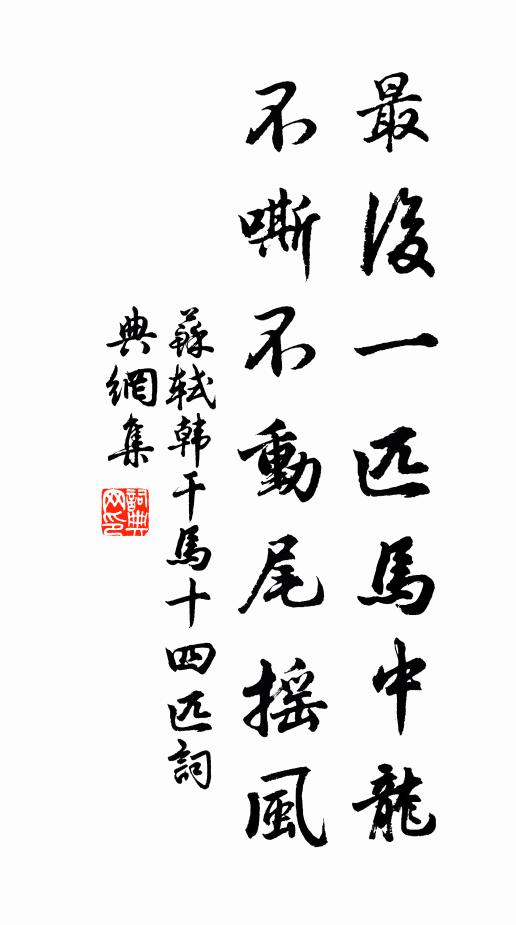 最後一匹馬中龍
不嘶不動尾搖風
蘇軾韓干馬十四匹詞
典網集
詞典
网印